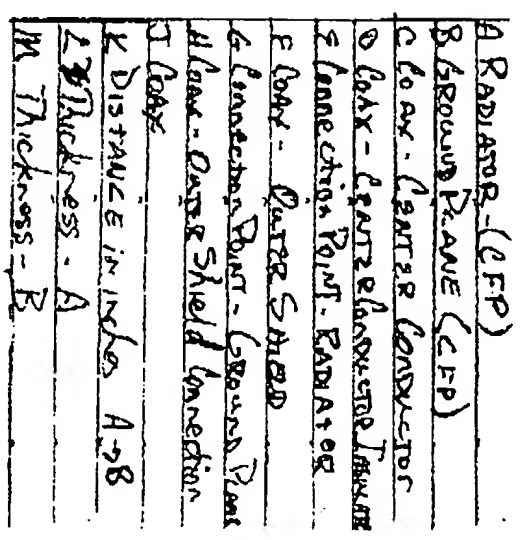 A RADIATOR - (CFP)
B GROUND PLANE (CFP)
C COAX - CENTER CONDUCTOR
D COAX - CENTER CONDUCTOR
E Connection POINT - RADIATOR
F COAX - OUTER SHIELD
G Connection POINT - GROUND PLANE
H COAX - OUTER Shield Connection
J COAX
K DISTANCE in inches A→B
L Thickness - A
M Thickness - B